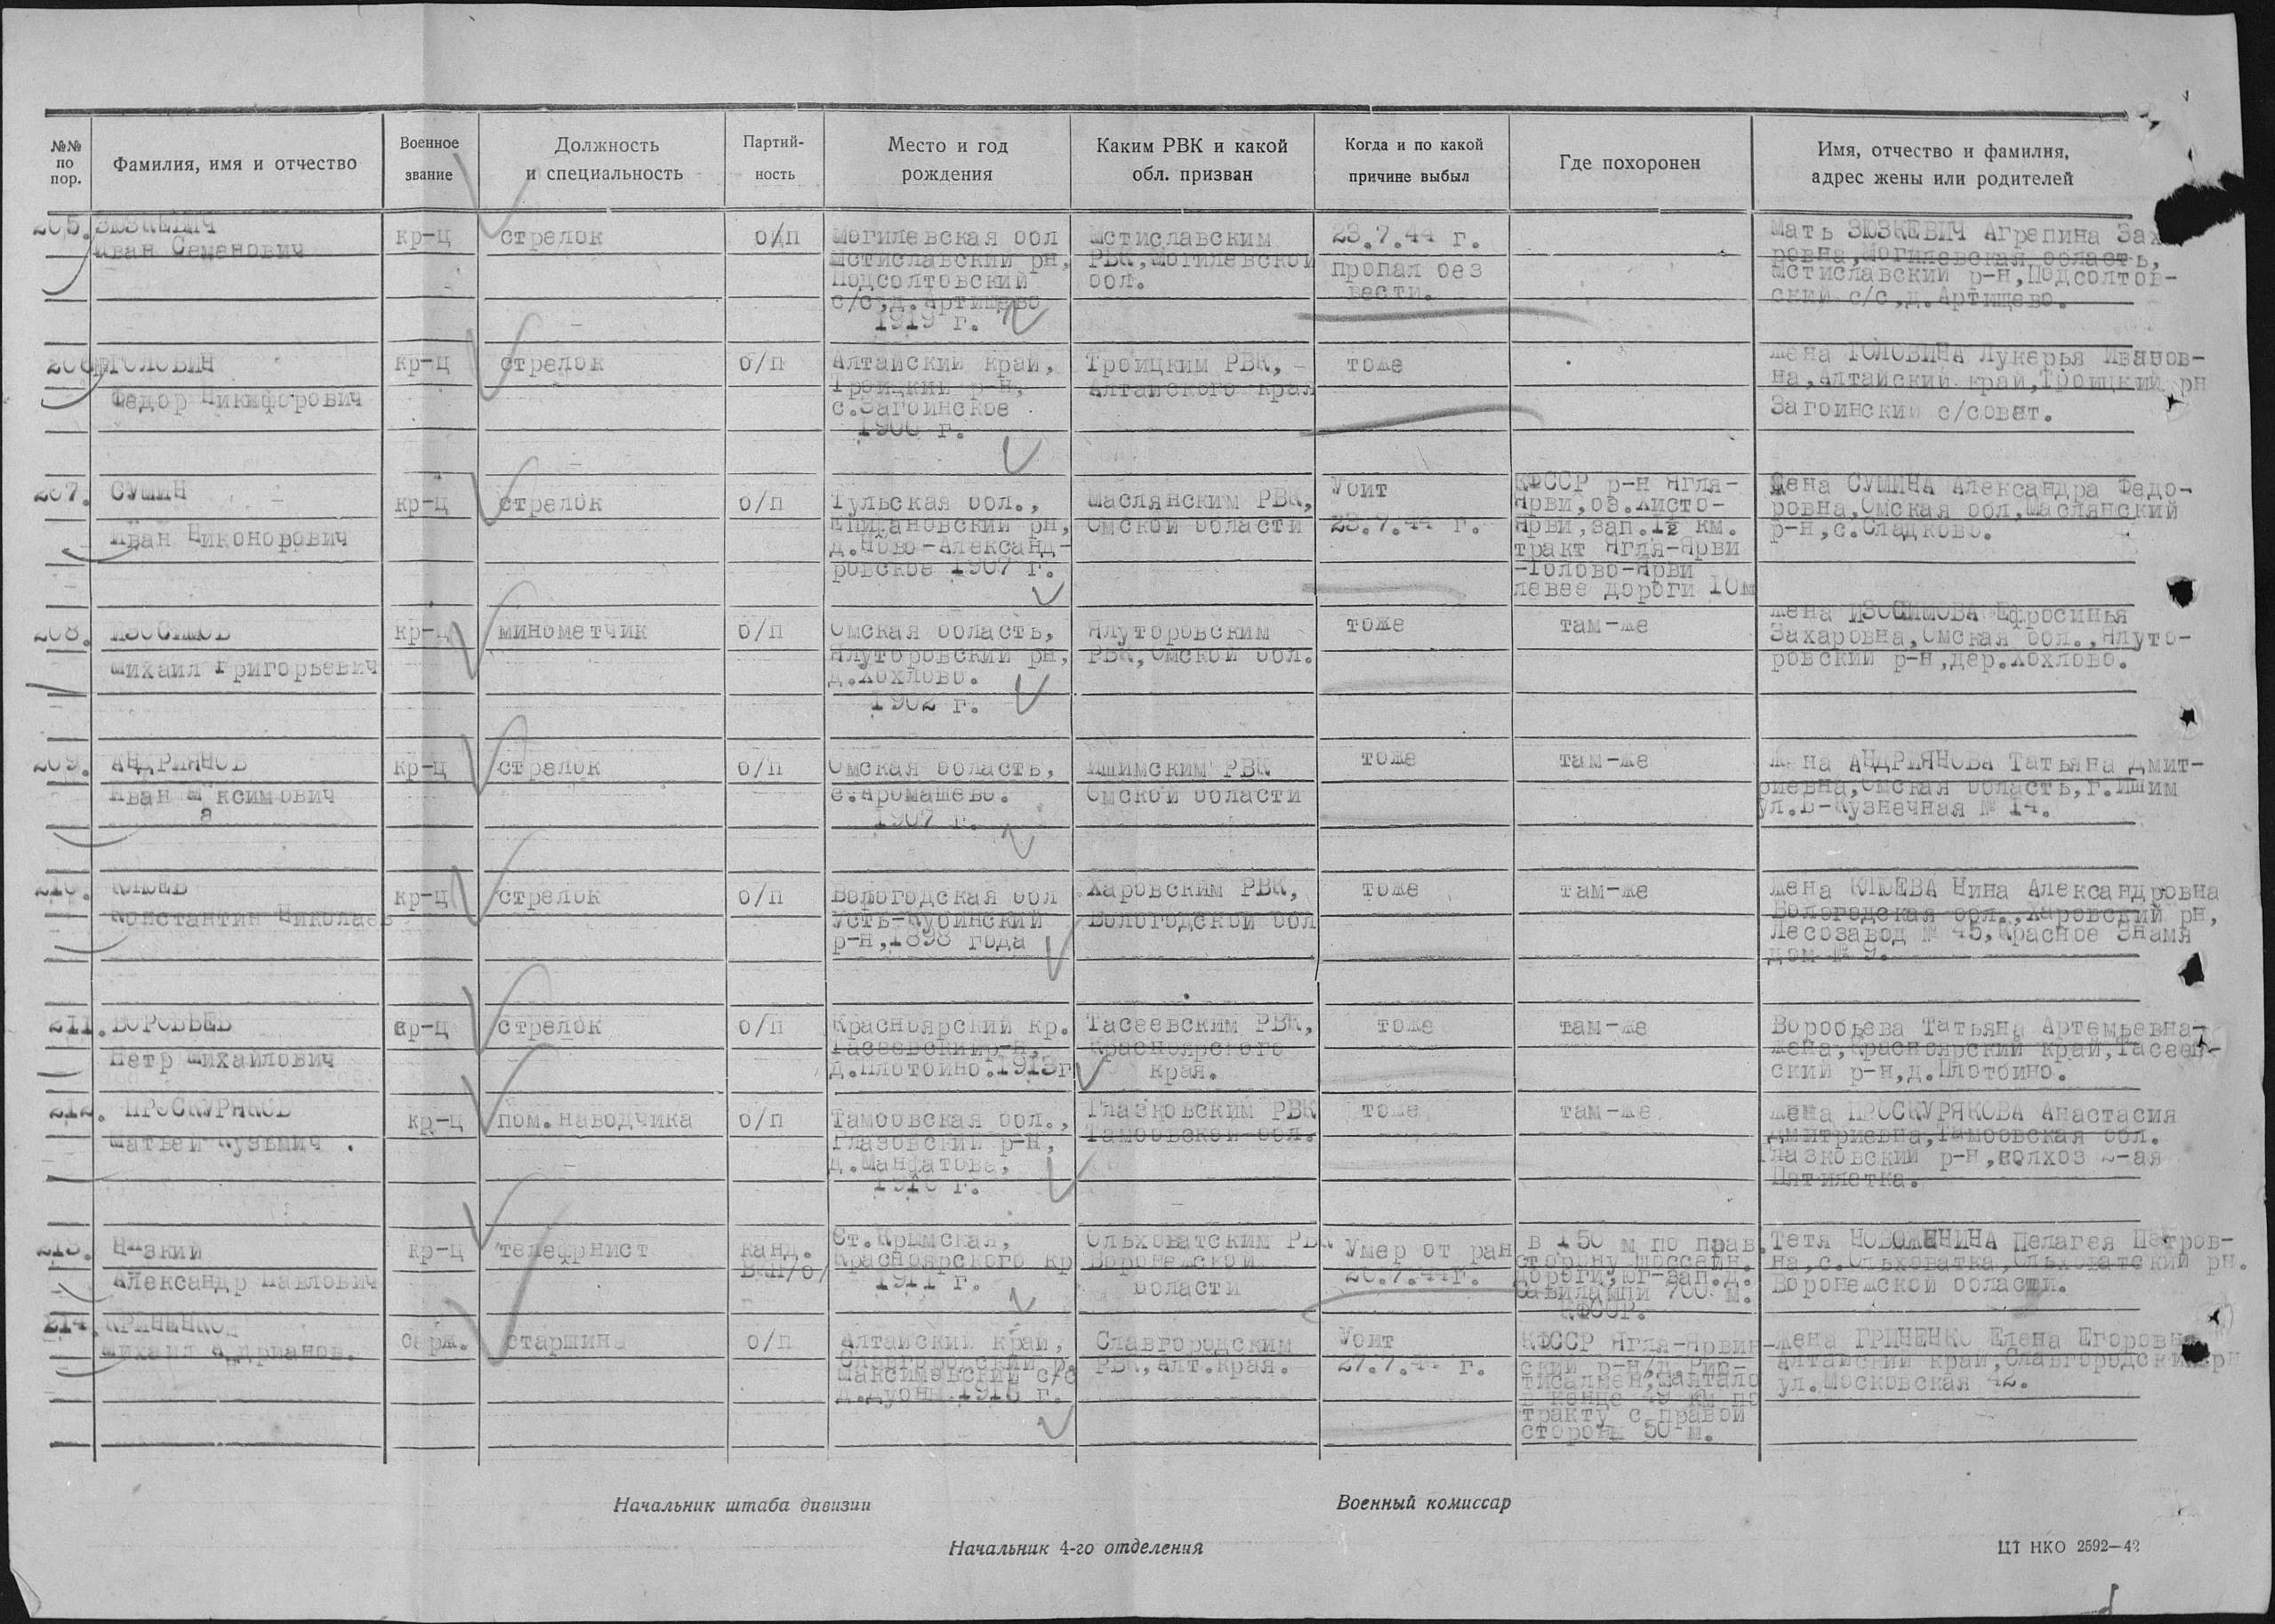 №№ по пор.
Фамилия, имя и отчество
Военное звание
Должность и специальность
Партийность
Место и год рождения
Каким РВК и какой обл. призван
Когда и по какой причине выбыл
Где похоронен
Имя, отчество и фамилия, адрес жены или родителей
205. ЗЮЗКЕВИЧ
Иван Семенович
кр-ц
стрелок
Могилевская обл
Мстиславский рн,
Подсолтовский
с/с, д. Артищево
1919 г.
Мстиславским
РВК, Могилевской
обл.
23.7.44 г.
пропал без
вести.
Мать ЗЮЗКЕВИЧ Агрепина Зах
ровна, Могилевская область,
Мстиславский р-н, Подсолтов-
ский с/с, д. Артищево.
ГОЛОВИН
Федор Никифорович
кр-ц
стрелок
б/п
Алтайский край,
Троицкий р-н,
с. Загоинское
1906 г.
Троицким РВК,
Алтайского края
тоже
Жена ГОЛОВИНА Лукерья Иванов-
на, Алтайский край, Троицкий рн
Загоинский с/совет.
207. СУШИН
Иван Никонорович
кр-ц
стрелок
б/п
Тульская обл.,
Епифановский рн,
д. Ново-Александ-
ровское 1907 г.
Маслянским РВК,
Омской области
Убит
23.7.44 г.
КФССР р-н Ягля-
Ярви, оз. Хисто-
Ярви, зап. 1½ км.
тракт Ягля-Ярви
-Толово-Ярви
левее дороги 10м
Жена СУШИНА Александра Федо-
ровна, Омская обл, Маслянский
р-н, с. Сладково.
208. ИЗОСИМОВ
Михаил Григорьевич
кр-ц
минометчик
б/п
Омская область,
Ялуторовский рн,
д. Хохлово.
1902 г.
Ялуторовским
РВК, Омской обл.
тоже
там-же
Жена ИЗОСИМОВА Ефросинья
Захаровна, Омская обл., Ялуто-
ровский р-н, дер. Хохлово.
209. АНДРИЯНОВ
Иван М ксимович
а
кр-ц
стрелок
б/п
Омская область,
с. Аромашево.
1907 г.
Ишимским РВК
Омской области
тоже
там-же
Жена АНДРИЯНОВА Татьяна Дмит-
риевна, Омская область, г. Ишим
ул. Б-Кузнечная № 14.
210. КЛЮЕВ
Константин Николаев
кр-ц
стрелок
б/п
Вологодская обл
Усть-Кубинский
р-н, 1898 года
Харовским РВК,
Вологодской обл
тоже
там-же
Жена КЛЮЕВА Нина Александровна
Вологодская обл., Харовский рн,
Лесозавод № 45, Красное Знамя
дом № 9.
211. ВОРОБЬЕВ
Петр Михайлович
кр-ц
стрелок
б/п
Красноярский кр.
Тасеевский р-н,
д. Плотбино. 1913г
Тасеевским РВК,
Красноярского
края.
тоже
там-же
Воробьева Татьяна Артемьевна-
жена, Красноярский край, Тасеев-
ский р-н, д. Плотбино.
212. ПРОСКУРЯКОВ
Матвей Кузьмич.
кр-ц
пом. наводчика
б/п
Тамбовская обл.,
Глазовский р-н,
д. Манфатова,
г.
Глазковским РВК
Тамбовской обл.
тоже
там-же
Жена ПРОСКУРЯКОВА Анастасия
Дмитриевна, Тамбовская обл.
Глазковский р-н, колхоз 2-ая
Пятилетка.
213. Низкий
Александр Павлович
кр-ц
телефонист
канд.
Ст. Крымская,
Красноярского кр
1911 г.
Ольховатским РВК
Воронежской
области
Умер от ран
26.7.44г.
в 150 м по прав.
сторону шоссейн.
дороги, юг-зап. д.
700 м.
КФССР.
Тетя НОВОМЛИНИНА Пелагея Петров-
на, с. Ольховатка, Ольховатский рн.
Воронежской области.
214.
Михаил Адрианов.
серж.
старшина
б/п
Алтайский край,
Славгородский р.
Максимовский с/с
1918 г.
Славгородским
РВК, Алт. края.
Убит
27.7.44 г.
КФССР Ягля-Ярвин
ский р-н
в конце 49 км по
тракту с правой
стороны 50 м.
Жена ГРИНЕНКО Елена Егоровна
Алтайский край, Славгородский рн
ул. Московская 42.
Начальник штаба дивизии
Военный комиссар
Начальник 4-го отделения
ЦТ НКО 2592—42